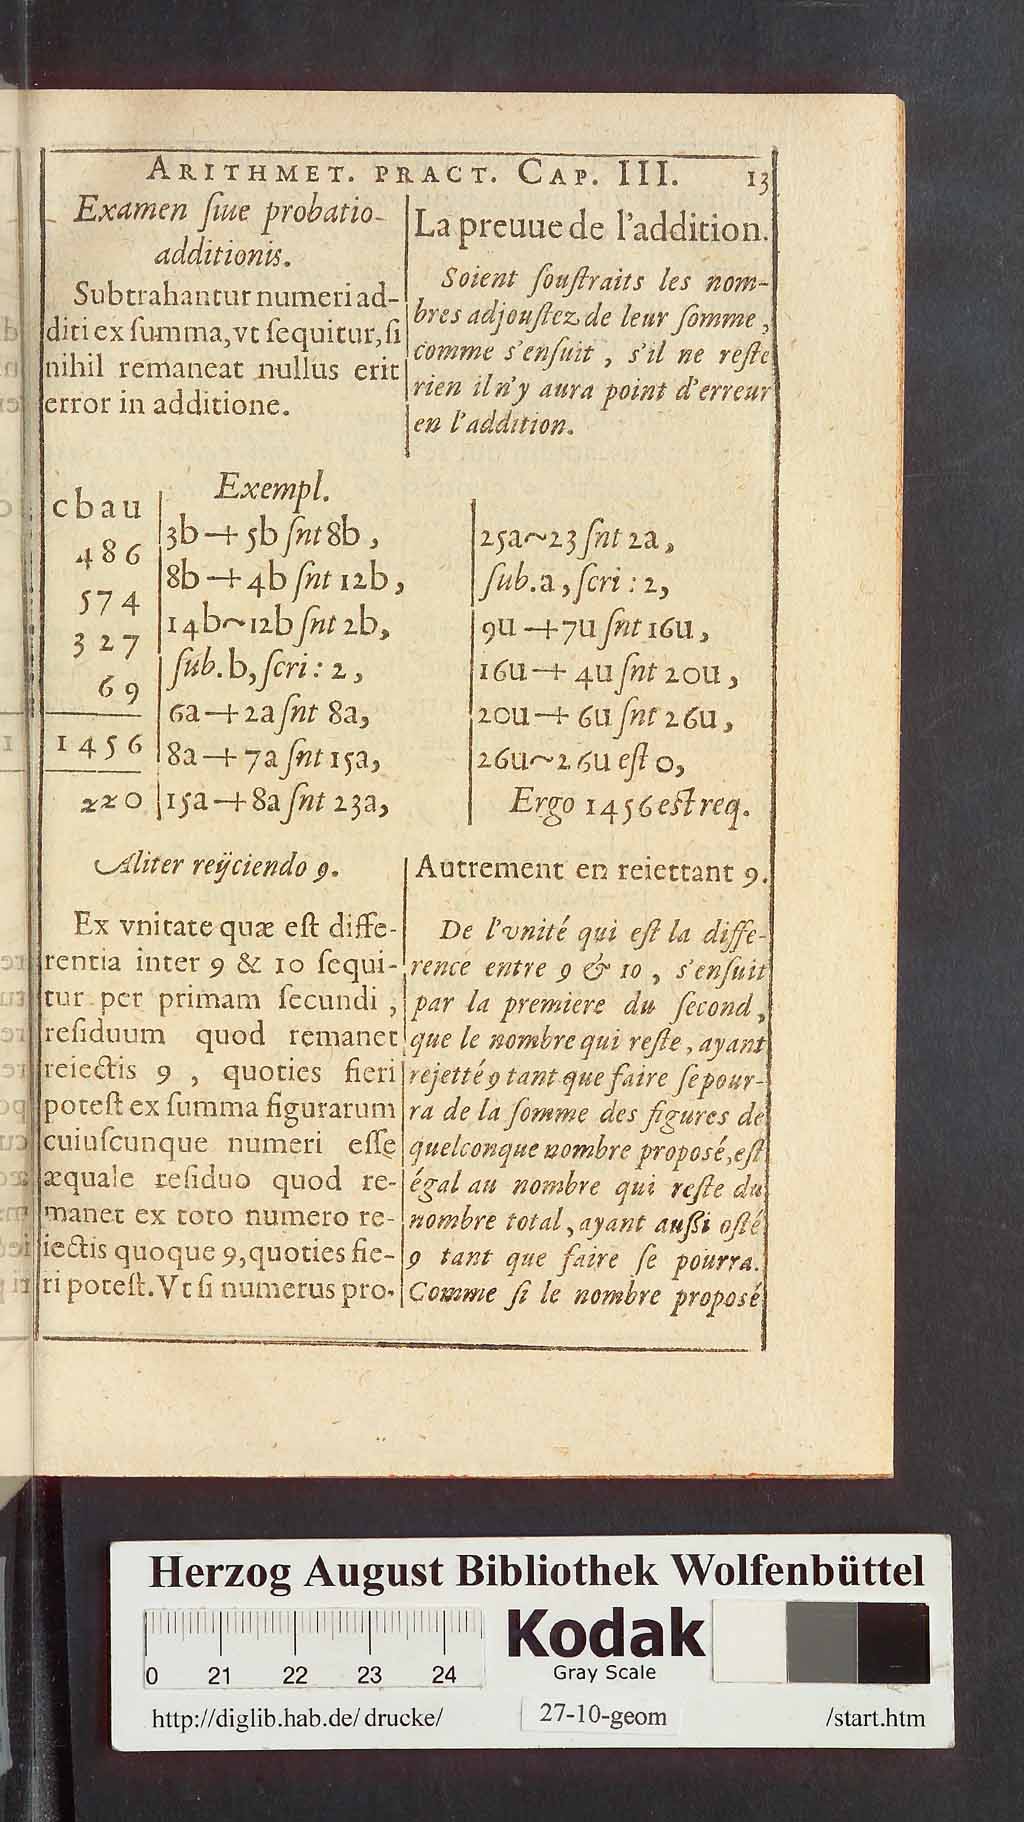 ARITHMET. PRACT. CAP. III. 13
Examen ſiue probatio
additionis.
Subtrahantur numeri ad-
diti ex ſumma, vt ſequitur, ſi
nihil remaneat nullus erit
error in additione.
La preuue de l'addition.
Soient ſouſtraits les nom-
bres adjouſtez de leur ſomme,
comme s'enſuit, s'il ne reſte
rien il n'y aura point d'erreur
en l'addition.
Exempl.
c b a u
4 8 6
5 7 4
3 2 7
6 9
1 4 5 6
2 2 0
3b + 5b ſnt 8b,
8b + 4b ſnt 12b,
14b ~ 12b ſnt 2b,
ſub. b, ſcri: 2,
6a + 2a ſnt 8a,
8a + 7a ſnt 15a,
15a + 8a ſnt 23a,
25a ~ 23 ſnt 2a,
ſub. a, ſcri: 2,
9u + 7u ſnt 16u,
16u + 4u ſnt 20u,
20u + 6u ſnt 26u,
26u ~ 26u eſt 0,
Ergo 1456 eſt req.
Aliter reijciendo 9.
Ex vnitate quæ eſt diffe-
rentia inter 9 & 10 ſequi-
tur per primam ſecundi,
reſiduum quod remanet
reiectis 9, quoties fieri
poteſt ex ſumma figurarum
cuiuſcunque numeri eſſe
æquale reſiduo quod re-
manet ex toto numero re-
iectis quoque 9, quoties fie-
ri poteſt. Vt ſi numerus pro-
Autrement en reiettant 9.
De l'vnité qui eſt la diffe-
rence entre 9 & 10, s'enſuit
par la premiere du ſecond,
que le nombre qui reſte, ayant
rejetté 9 tant que faire ſe pour-
ra de la ſomme des figures de
quelconque nombre proposé, eſt
égal au nombre qui reſte du
nombre total, ayant auſſi oſté
9 tant que faire ſe pourra.
Comme ſi le nombre proposé
Herzog August Bibliothek Wolfenbüttel
0 21 22 23 24
Kodak
Gray Scale
http://diglib.hab.de/drucke/ 27-10-geom /start.htm